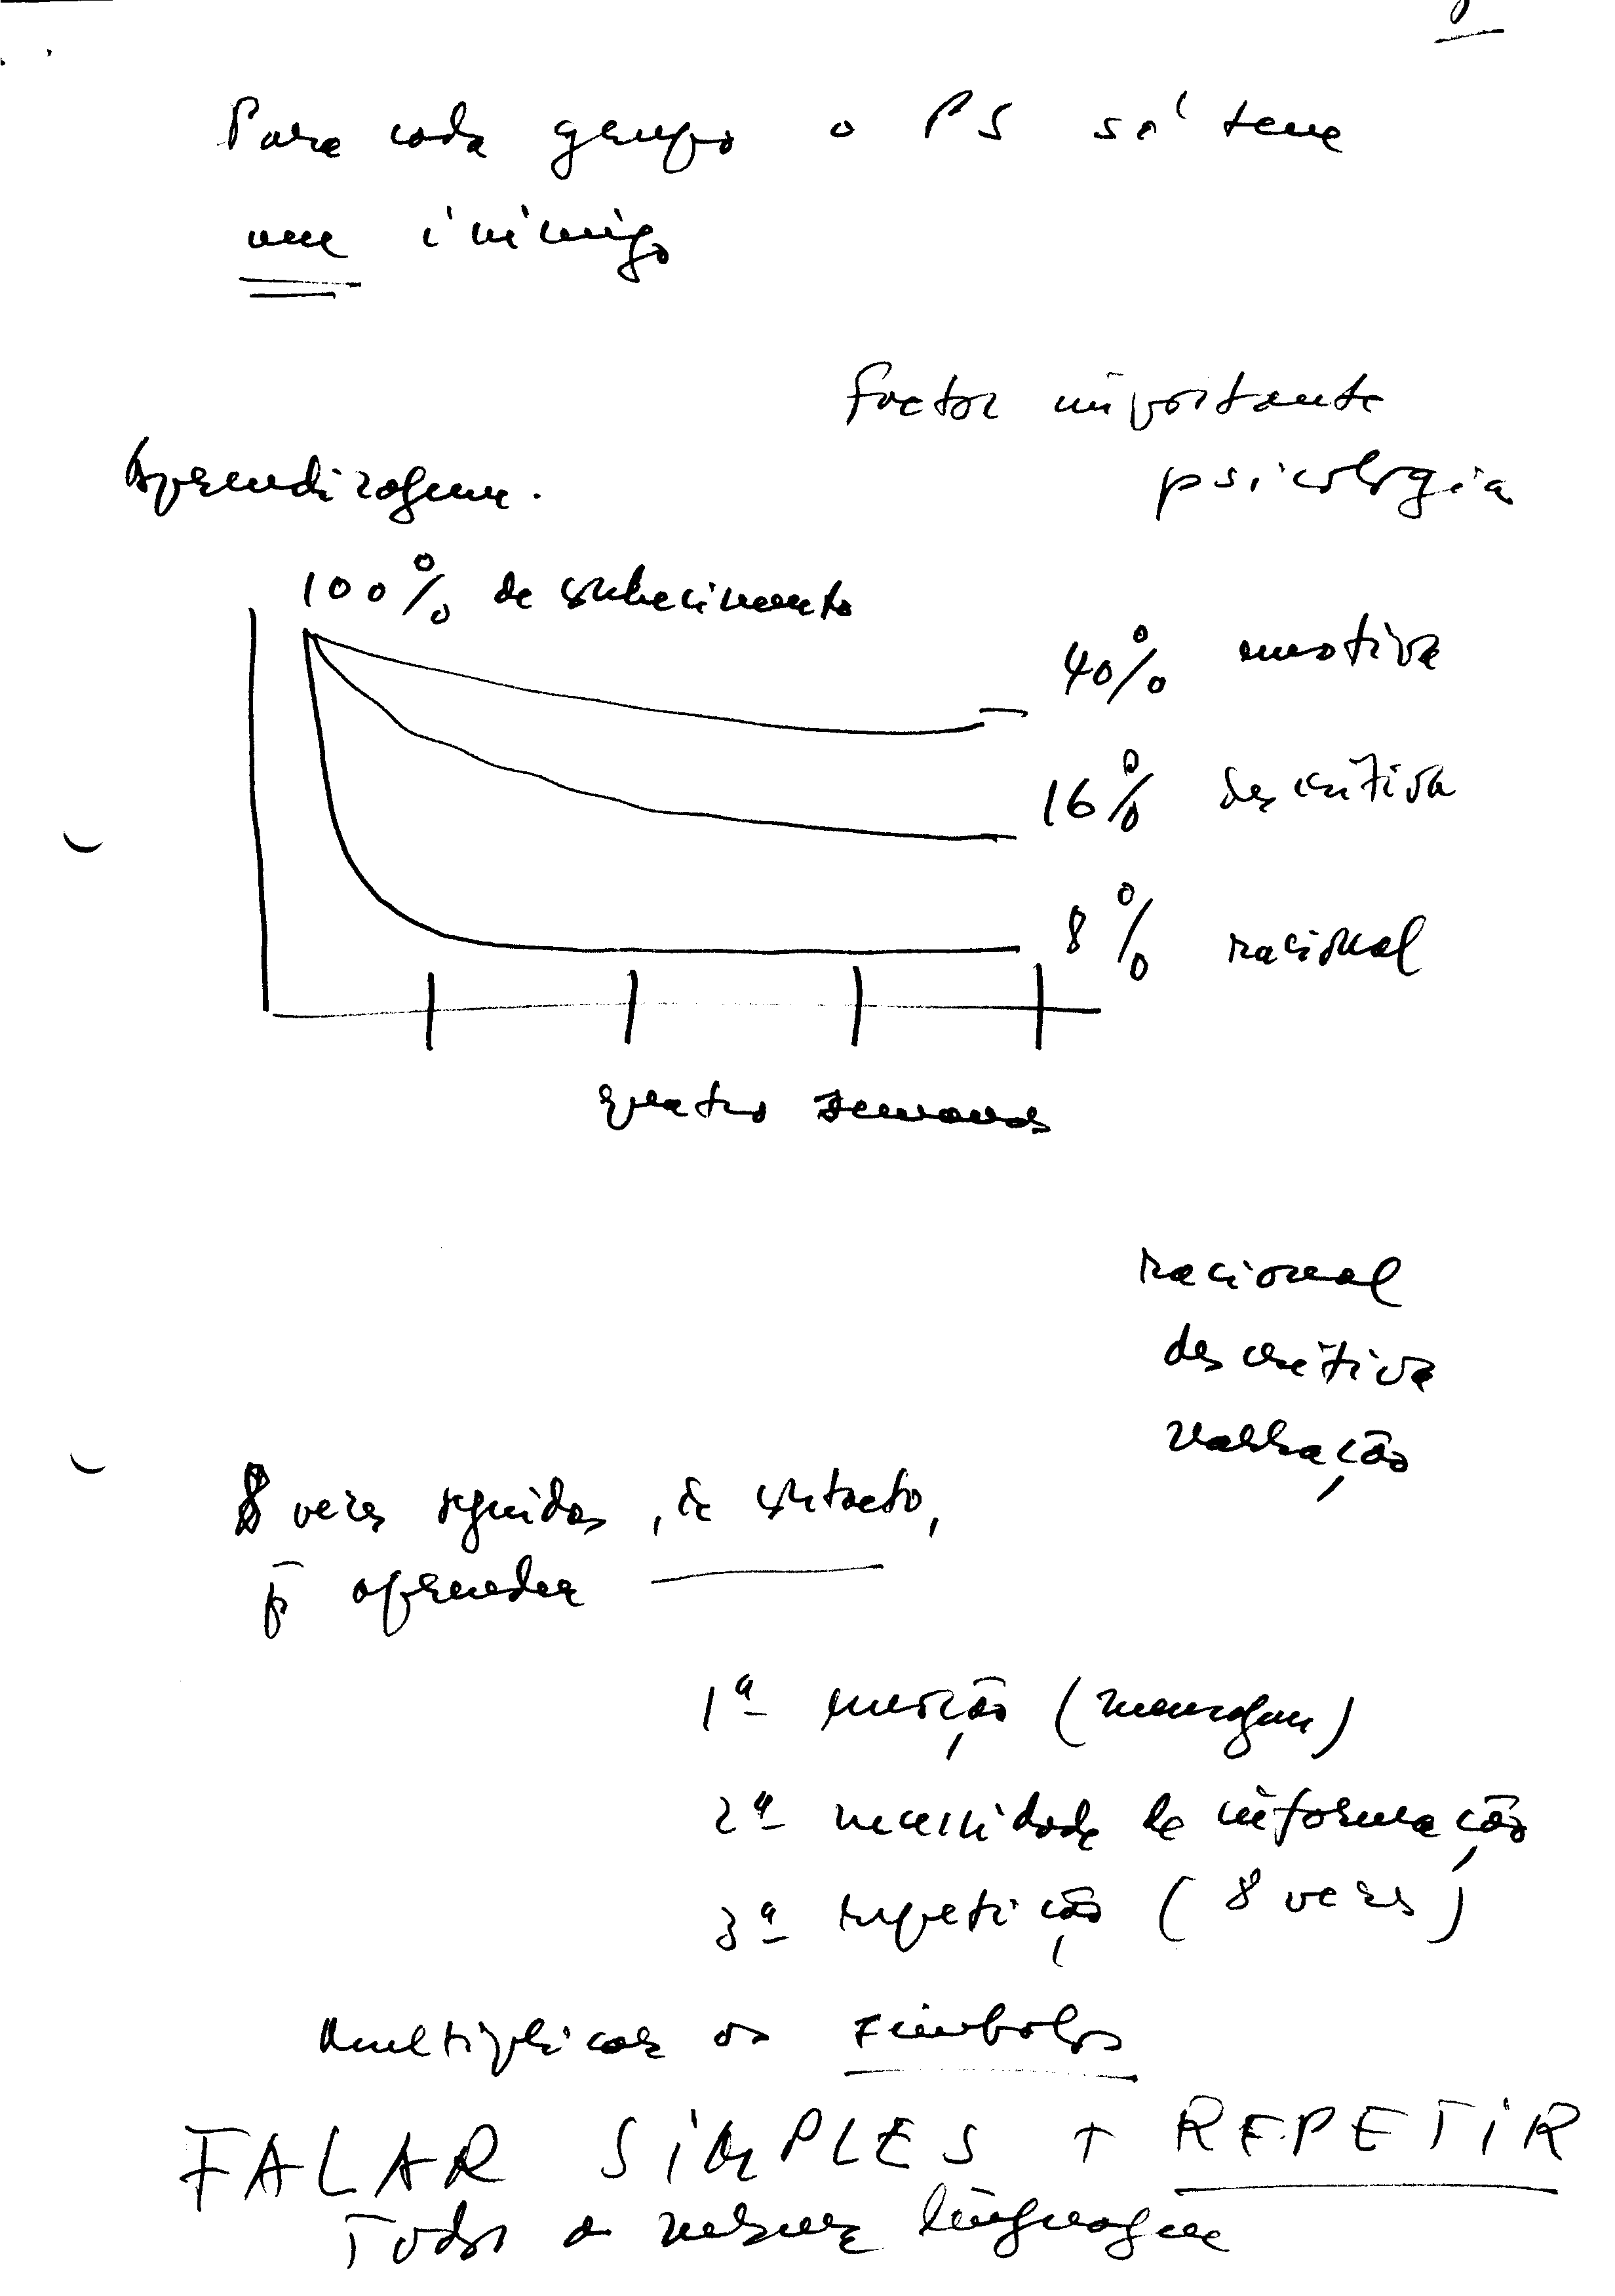 Para cada grupo o PS só tem
um inimigo
factor importante
psicologia
Aprendizagem.
100% de conhecimento
40% emotiva
16% descritiva
8% racional
quatro semanas
racional
descritiva
narração
8 vezes seguidas, de contacto,
p̄ aprender
1ª emoção (mensagem)
2ª necessidade de informação
3ª repetição (8 vezes)
Multiplicar os símbolos
FALAR SIMPLES + REPETIR
Todos a mesma linguagem